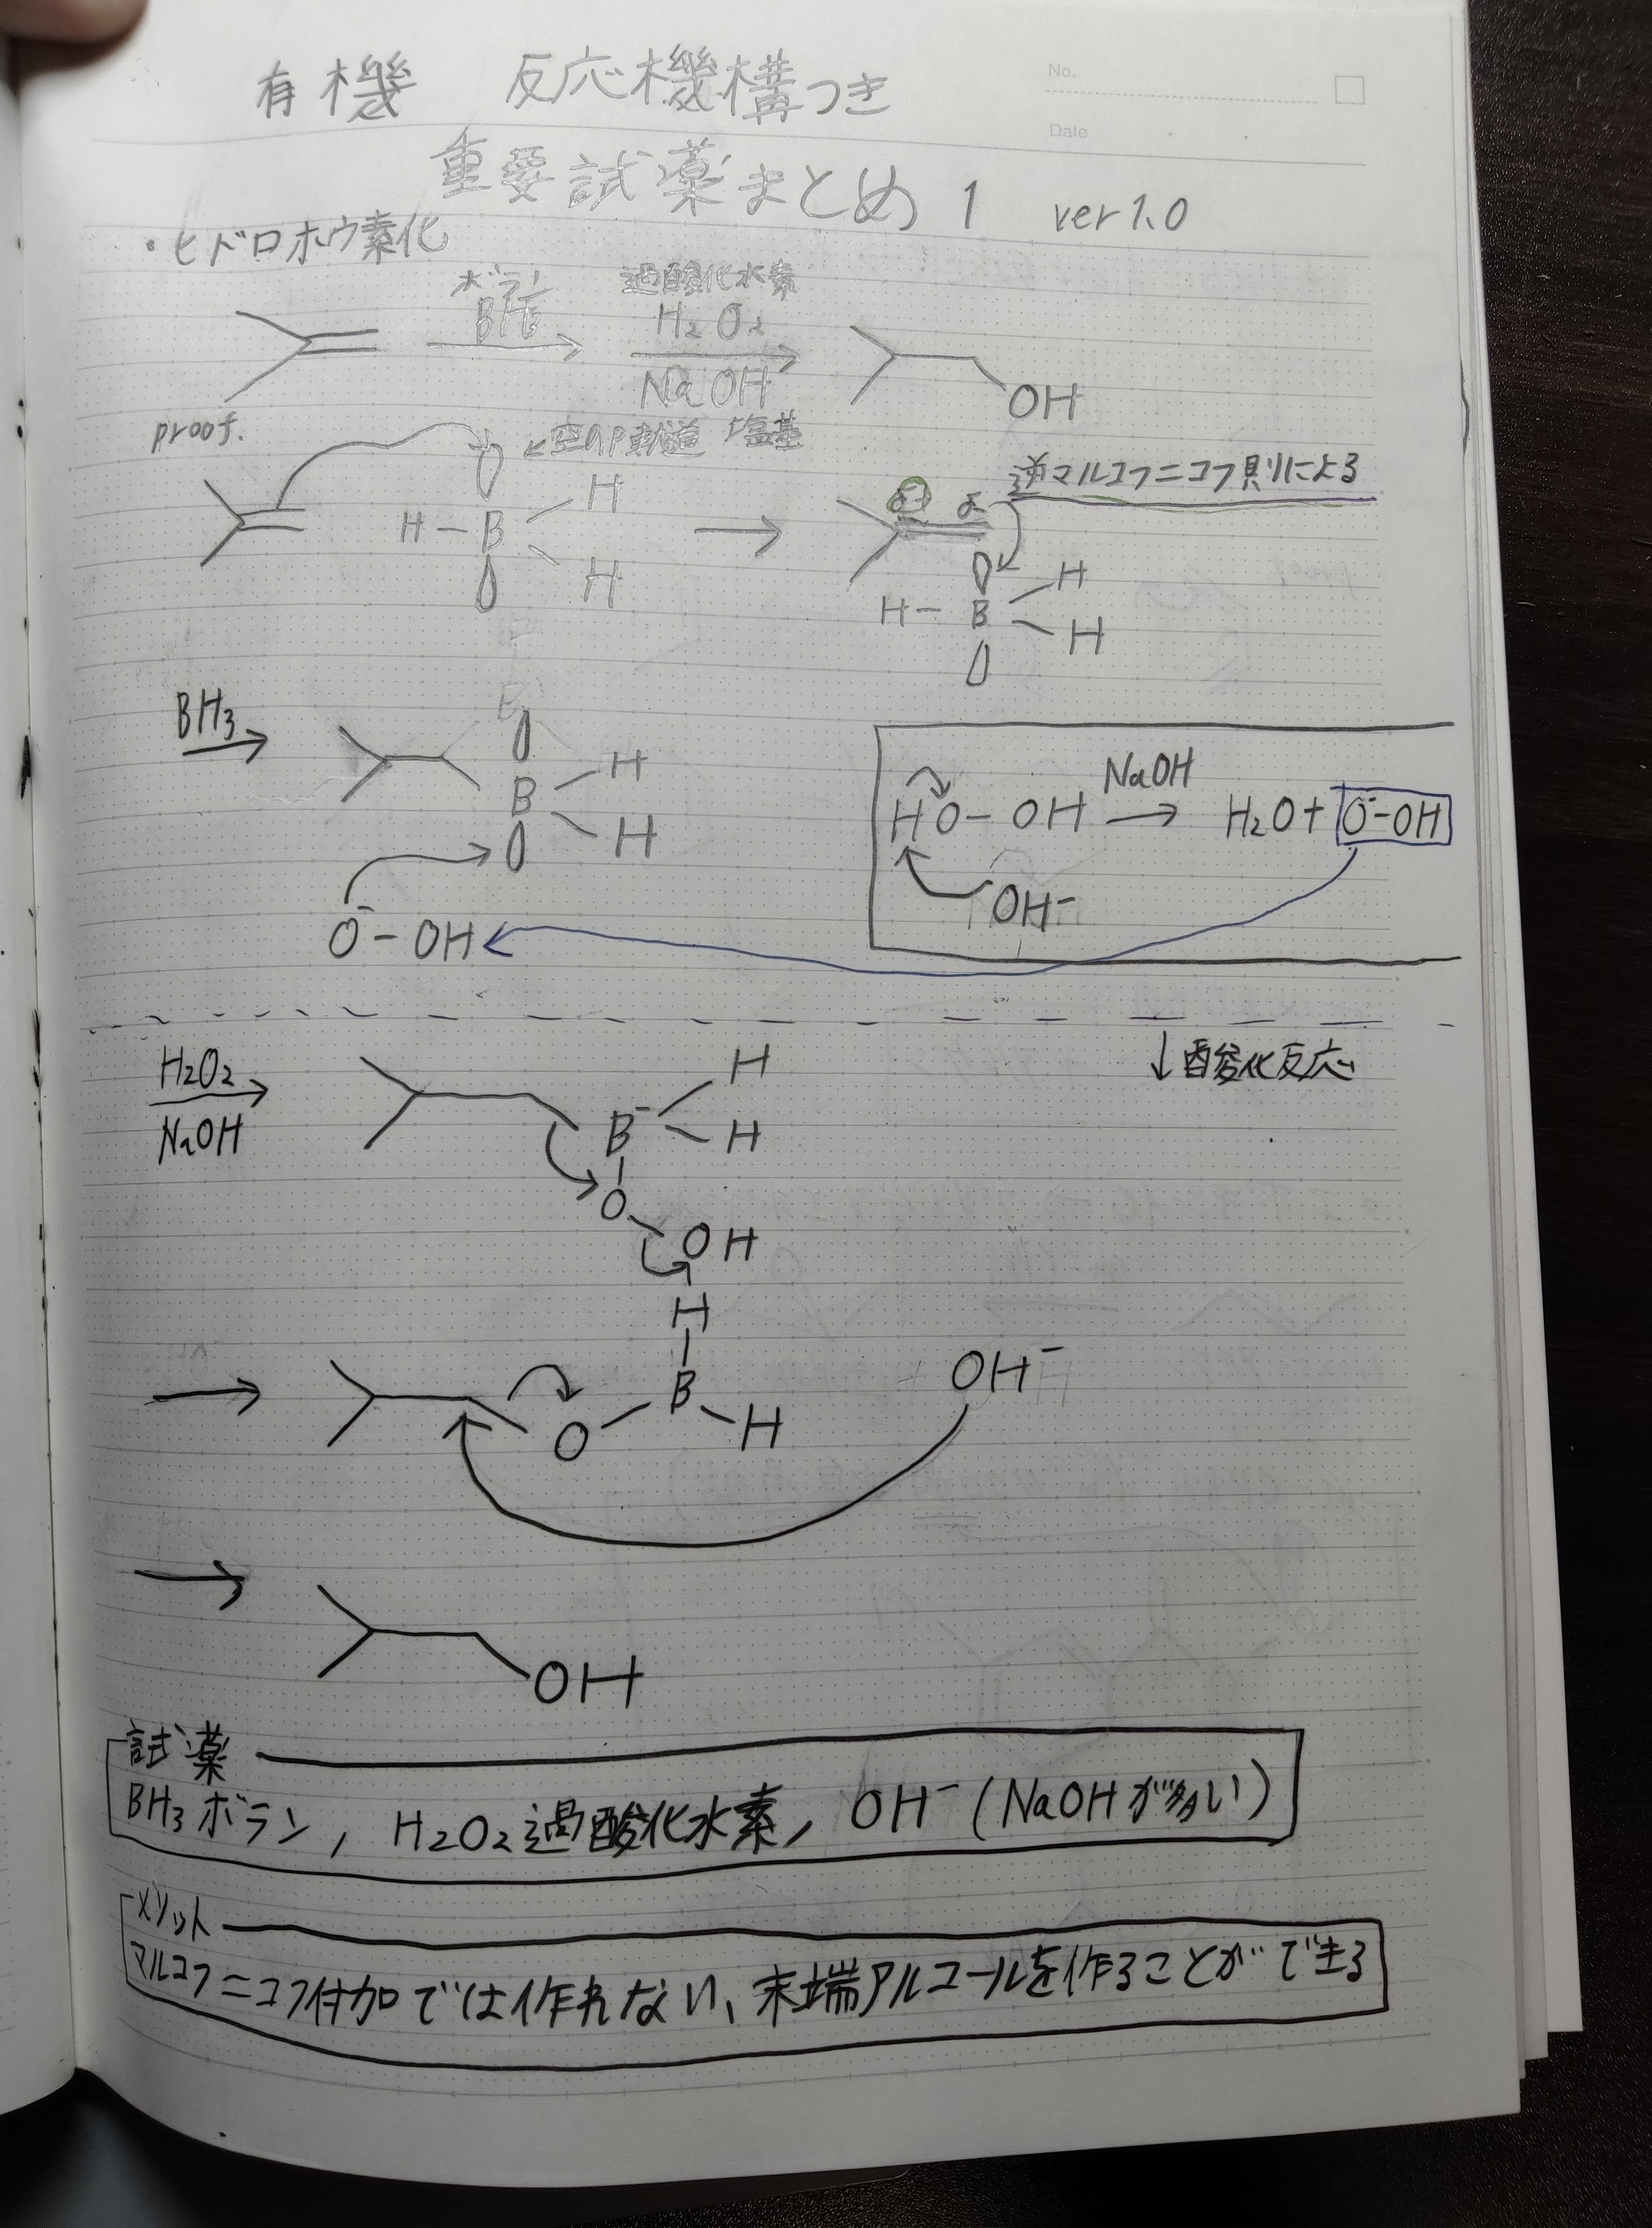 No.
Date
有機 反応機構つき
重要試薬まとめ 1 ver 1.0
・ヒドロホウ素化
ボラン 過酸化水素
BH₃ H₂O₂
NaOH
OH
proof.
←空のp軌道 塩基
逆マルコフニコフ則による
H
H－B
H
H
H－B
H
BH₃
B
H
H
NaOH
HO－OH → H₂O + O⁻－OH
OH⁻
O⁻－OH
↓酸化反応
H₂O₂
NaOH
H
B⁻
H
O
OH
H
B
H
O
OH⁻
OH
試薬
BH₃ボラン, H₂O₂過酸化水素, OH⁻(NaOHが多い)
メリット
マルコフニコフ付加では作れない、末端アルコールを作ることができる